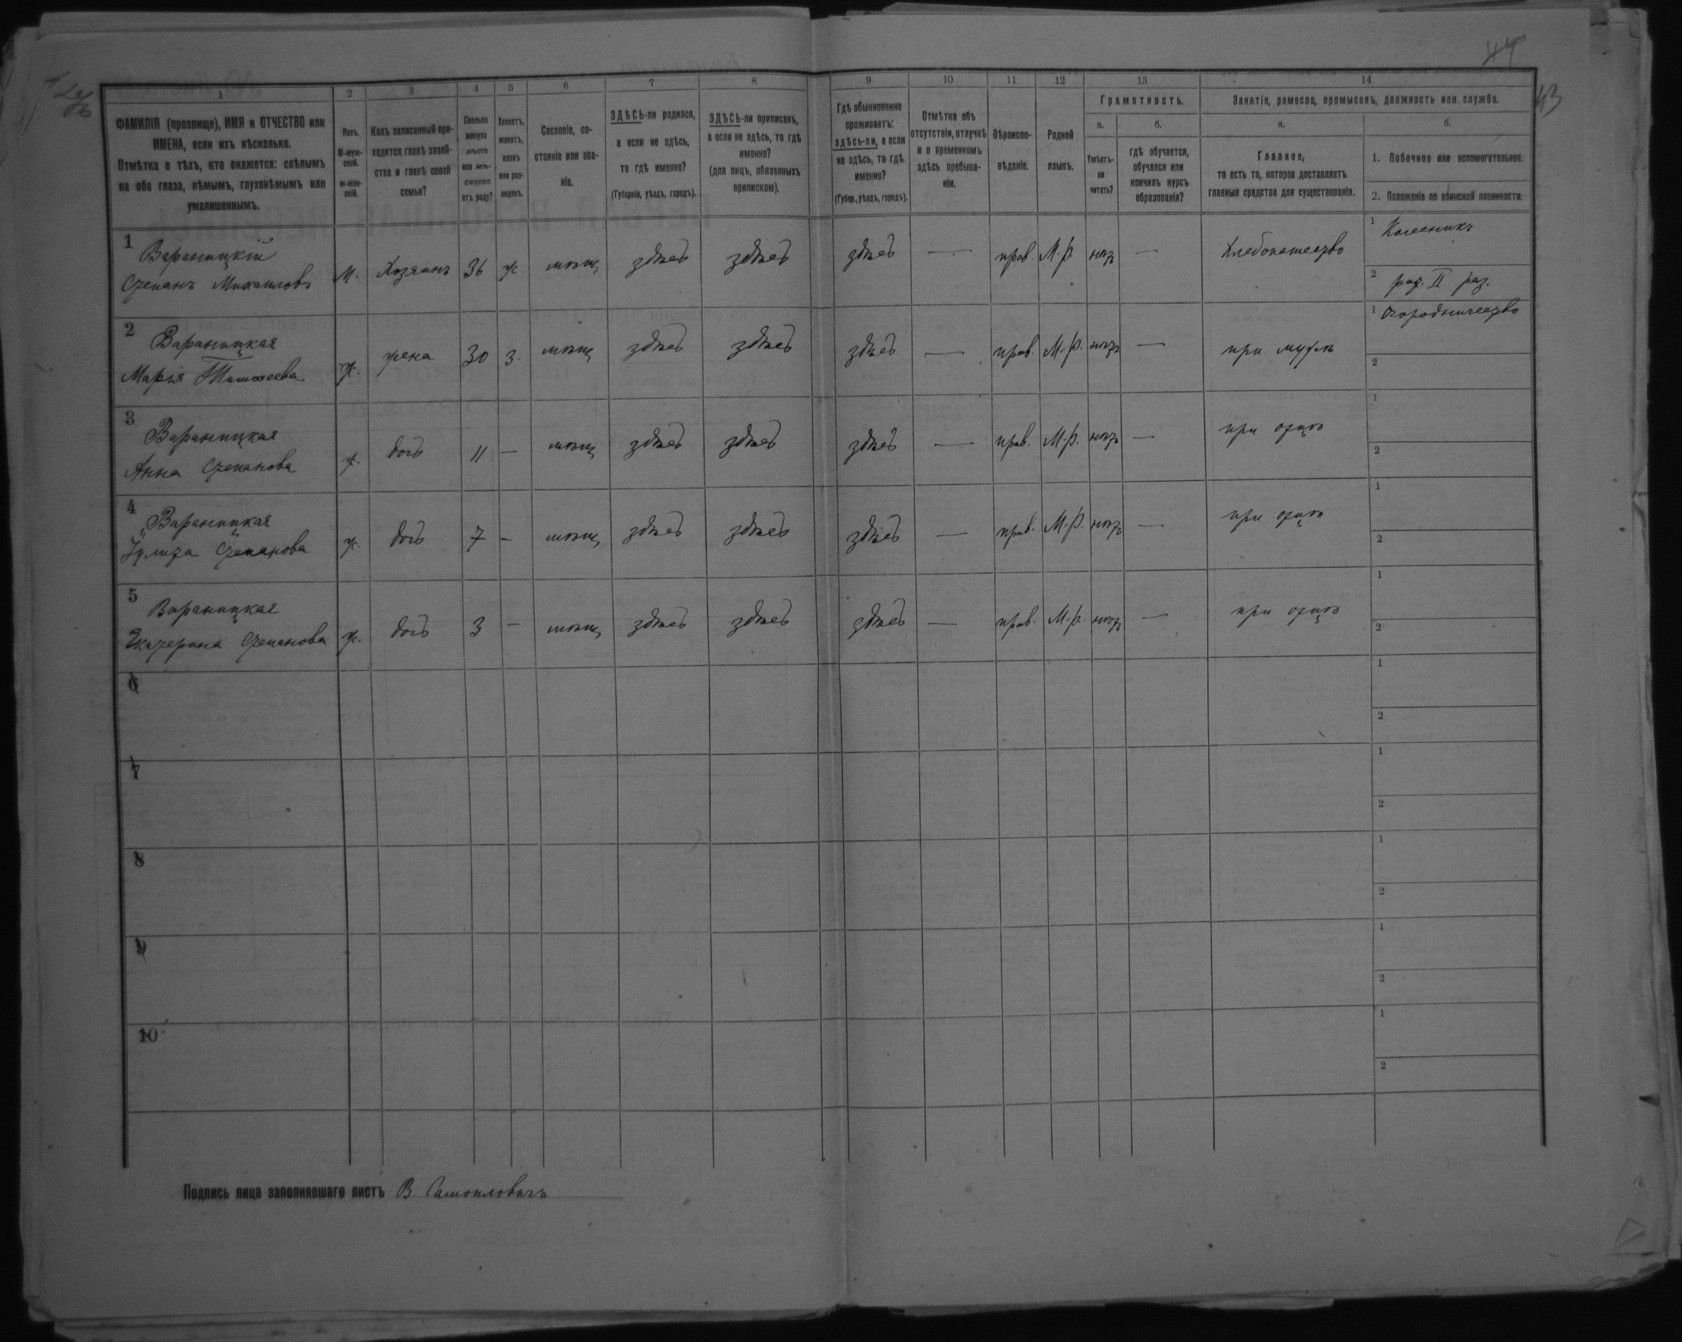 47
43
1 2 3 4 5 6 7 8 9 10 11 12 13 14
ФАМИЛІЯ (прозвище), ИМЯ и ОТЧЕСТВО или
ИМЕНА, если ихъ нѣсколько.
Отмѣтка о тѣхъ, кто окажется: слѣпымъ
на оба глаза, нѣмымъ, глухонѣмымъ или
умалишеннымъ.
Полъ.
М-муж-
ской.
ж-жен-
скій.
Какъ записанный при-
ходится главѣ хозяй-
ства и главѣ своей
семьи?
Сколько
минуло
лѣтъ
или мѣ-
сяцевъ
отъ роду?
Холостъ,
женатъ,
вдовъ
или раз-
веденъ.
Сословіе, со-
стояніе или зва-
ніе.
ЗДѢСЬ-ли родился,
а если не здѣсь,
то гдѣ именно?
(Губернія, уѣздъ, городъ).
ЗДѢСЬ-ли приписанъ,
а если не здѣсь, то гдѣ
именно?
(для лицъ, обязанныхъ
припискою).
Гдѣ обыкновенно
проживаетъ:
здѣсь-ли, а если
не здѣсь, то гдѣ
именно?
(Губер., уѣздъ, городъ).
Отмѣтка объ
отсутствіи, отлучкѣ
и о временномъ
здѣсь пребыва-
ніи.
Вѣроиспо-
вѣданіе.
Родной
языкъ.
Грамотность.
а.
Умѣетъ-
ли
читать?
б.
гдѣ обучается,
обучался или
кончилъ курсъ
образованія?
Занятія, ремесло, промыселъ, должность или служба.
а.
Главное,
то есть то, которое доставляетъ
главныя средства для существованія.
б.
1. Побочное или вспомогательное.
2. Положеніе по воинской повинности.
1 Вараницкій
Степанъ Михаиловъ М. Хозяинъ 36 ж мѣщ здѣсь здѣсь здѣсь — прав. М.р. нѣтъ — Хлебопашество
1 Колесникъ
2 рат. II раз.
2 Вараницкая
Марія ж. жена 30 з. мѣщ здѣсь здѣсь здѣсь — прав. М.р. нѣтъ — при мужѣ
1 Огородничество
2
3 Вараницкая
Анна Степанова ж. дочь 11 — мѣщ здѣсь здѣсь здѣсь — прав. М.р. нѣтъ — при отцѣ
1
2
4 Вараницкая
Степанова ж. дочь 7 — мѣщ здѣсь здѣсь здѣсь — прав. М.р. нѣтъ — при отцѣ
1
2
5 Вараницкая
Екатерина Степанова ж. дочь 3 — мѣщ здѣсь здѣсь здѣсь — прав. М.р. нѣтъ — при отцѣ
1
2
6
1
2
7
1
2
8
1
2
9
1
2
10
1
2
Подпись лица заполнявшаго листъ В. Самойловичъ